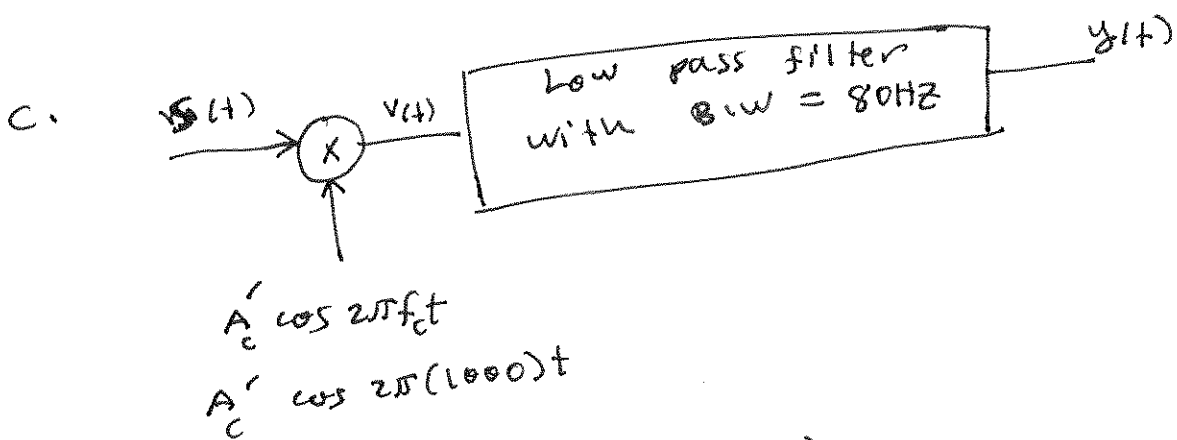 C.
s(t)
v(t)
Low pass filter
with B.W = 80HZ
y(t)
X
A_c' cos 2πf_c t
A_c' cos 2π(1000)t